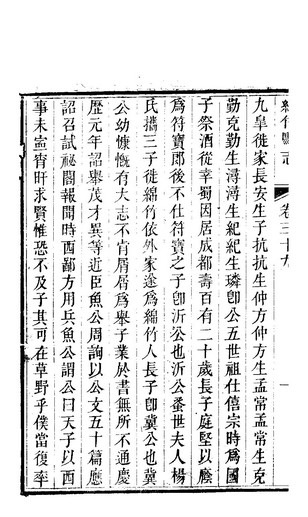 綿竹縣志 卷三十九
九皐徙家長安生子抗抗生仲方仲方生孟常孟常生克
勤克勤生溥溥生紀紀生璘卽公五世祖仕僖宗時爲國
子祭酒從幸蜀因居成都壽百有二十歲長子庭堅以廕
爲符寶郎後不仕符寶之子卽沂公也沂公蚤世夫人楊
氏攜三子徙綿竹依外家遂爲綿竹人長子卽冀公也冀
公幼慷慨有大志不肯屑屑爲舉子業於書無所不通慶
歷元年詔舉茂才異等近臣魚公周詢以公文五十篇應
詔召試祕閣報聞時西鄙方用兵魚公謂公曰天子以西
事未寧宵旰求賢惟恐不及子其可在草野乎僕當復率